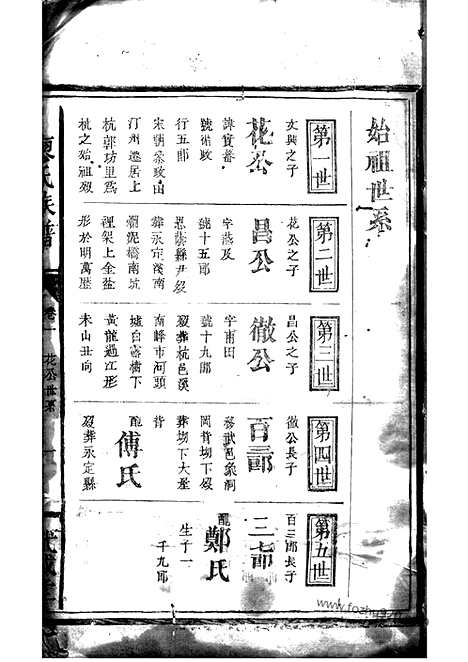 始祖世系
第一世
文興之子
花公
諱實蕃
號循政
行五郎
宋朝參政由
汀州遷居上
杭郭功里爲
杭之始祖歿
第二世
花公之子
昌公
字燕及
號十五郎
恩蔭縣尹歿
葬永定溪南
瀾泥橋南坑
裡架上金盆
形於明萬曆
第三世
昌公之子
徹公
字甫田
號十九郎
歿葬杭邑溪
南峰市河頭
墟白石橋下
黃龍過江形
未山丑向
第四世
徹公長子
百三郎
移武邑象洞
岡背坳下歿
葬坳下大產
背
配
傅氏
歿葬永定縣
第五世
百三郎長子
三郎
配
鄭氏
生子一
千九郎
廖氏族譜
卷一
花公世系
一
www.fozhu920.com